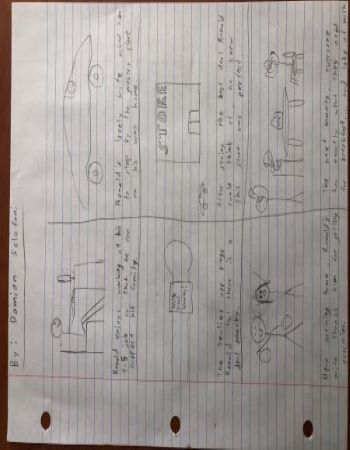 By: Damian Sclafani
Ronald enjoys working at his
9-5 job so that he can
support his family.
Ronald's lovely wife asked him
to stop by the grocery store
on his way home.
The
Ronald that there is a
deal nearby.
STORE
After seeing the best deal Ronald
could think of, he knew
this store was perfect
Upon arriving home, Ronald's
wife thanks him for getting
groceries.
The next morning, everyone
has exactly what they need
for breakfast, and lots of milk